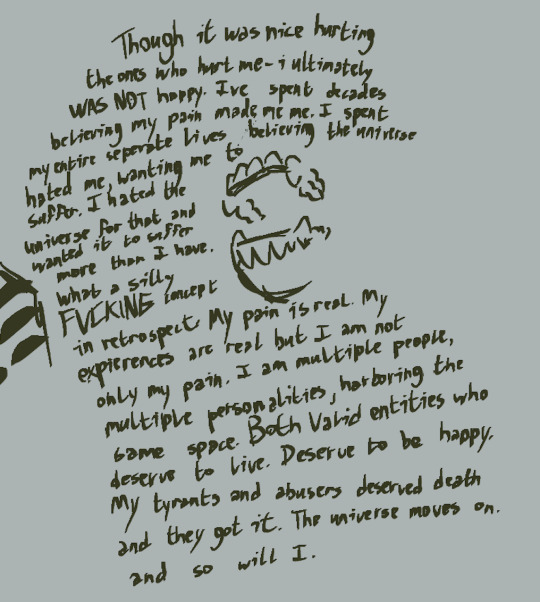 Though it was nice hurting
the ones who hurt me - i ultimately
WAS NOT happy. Ive spent decades
believing my pain made me me. I spent
my entire seperate lives believing the universe
hated me, wanting me to
suffer. I hated the
universe for that and
wanted it to suffer
more than I have.
what a silly
FUCKING concept
in retrospect. My pain is real. My
expierences are real but I am not
only my pain. I am multiple people,
multiple personalities, harboring the
same space. Both Valid entities who
deserve to live. Deserve to be happy.
My tyrants and abusers deserved death
and they got it. The universe moves on.
and so will I.